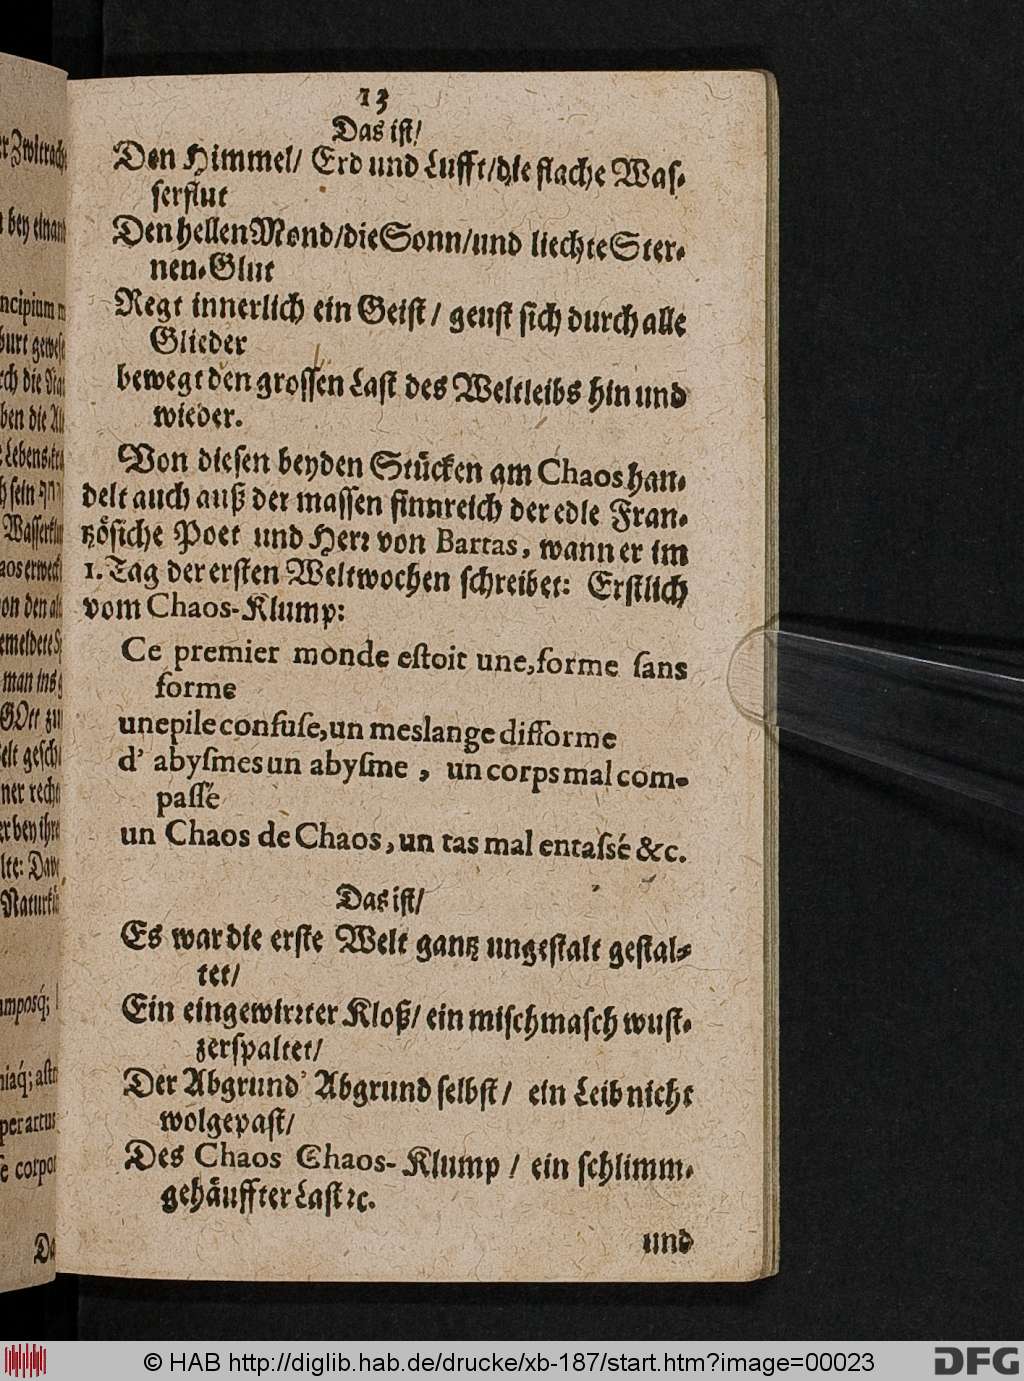 13
Das ist/
Den Himmel/ Erd und Lufft/die flache Was-
serflut
Den hellen Mond/die Sonn/und liechte Ster-
nen-Glut
Regt innerlich ein Geist/ geust sich durch alle
Glieder
bewegt den grossen Last des Weltleibs hin und
wieder.
Von diesen beyden Stücken am Chaos han-
delt auch auß der massen sinnreich der edle Fran-
tzösiche Poet und Herr von Bartas, wann er im
1. Tag der ersten Weltwochen schreibet: Erstlich
vom Chaos-Klump:
Ce premier monde estoit une, forme sans
forme
une pile confuse, un meslange difforme
d' abysmes un abysme, un corps mal com-
passé
un Chaos de Chaos, un tas mal entassé &c.
Das ist/
Es war die erste Welt gantz ungestalt gestal-
tet/
Ein eingewirrter Kloß/ ein mischmasch wust-
zerspaltet/
Der Abgrund' Abgrund selbst/ ein Leib nicht
wolgepast/
Des Chaos Chaos-Klump/ ein schlimm-
gehäuffter Last ꝛc.
und
© HAB http://diglib.hab.de/drucke/xb-187/start.htm?image=00023
DFG